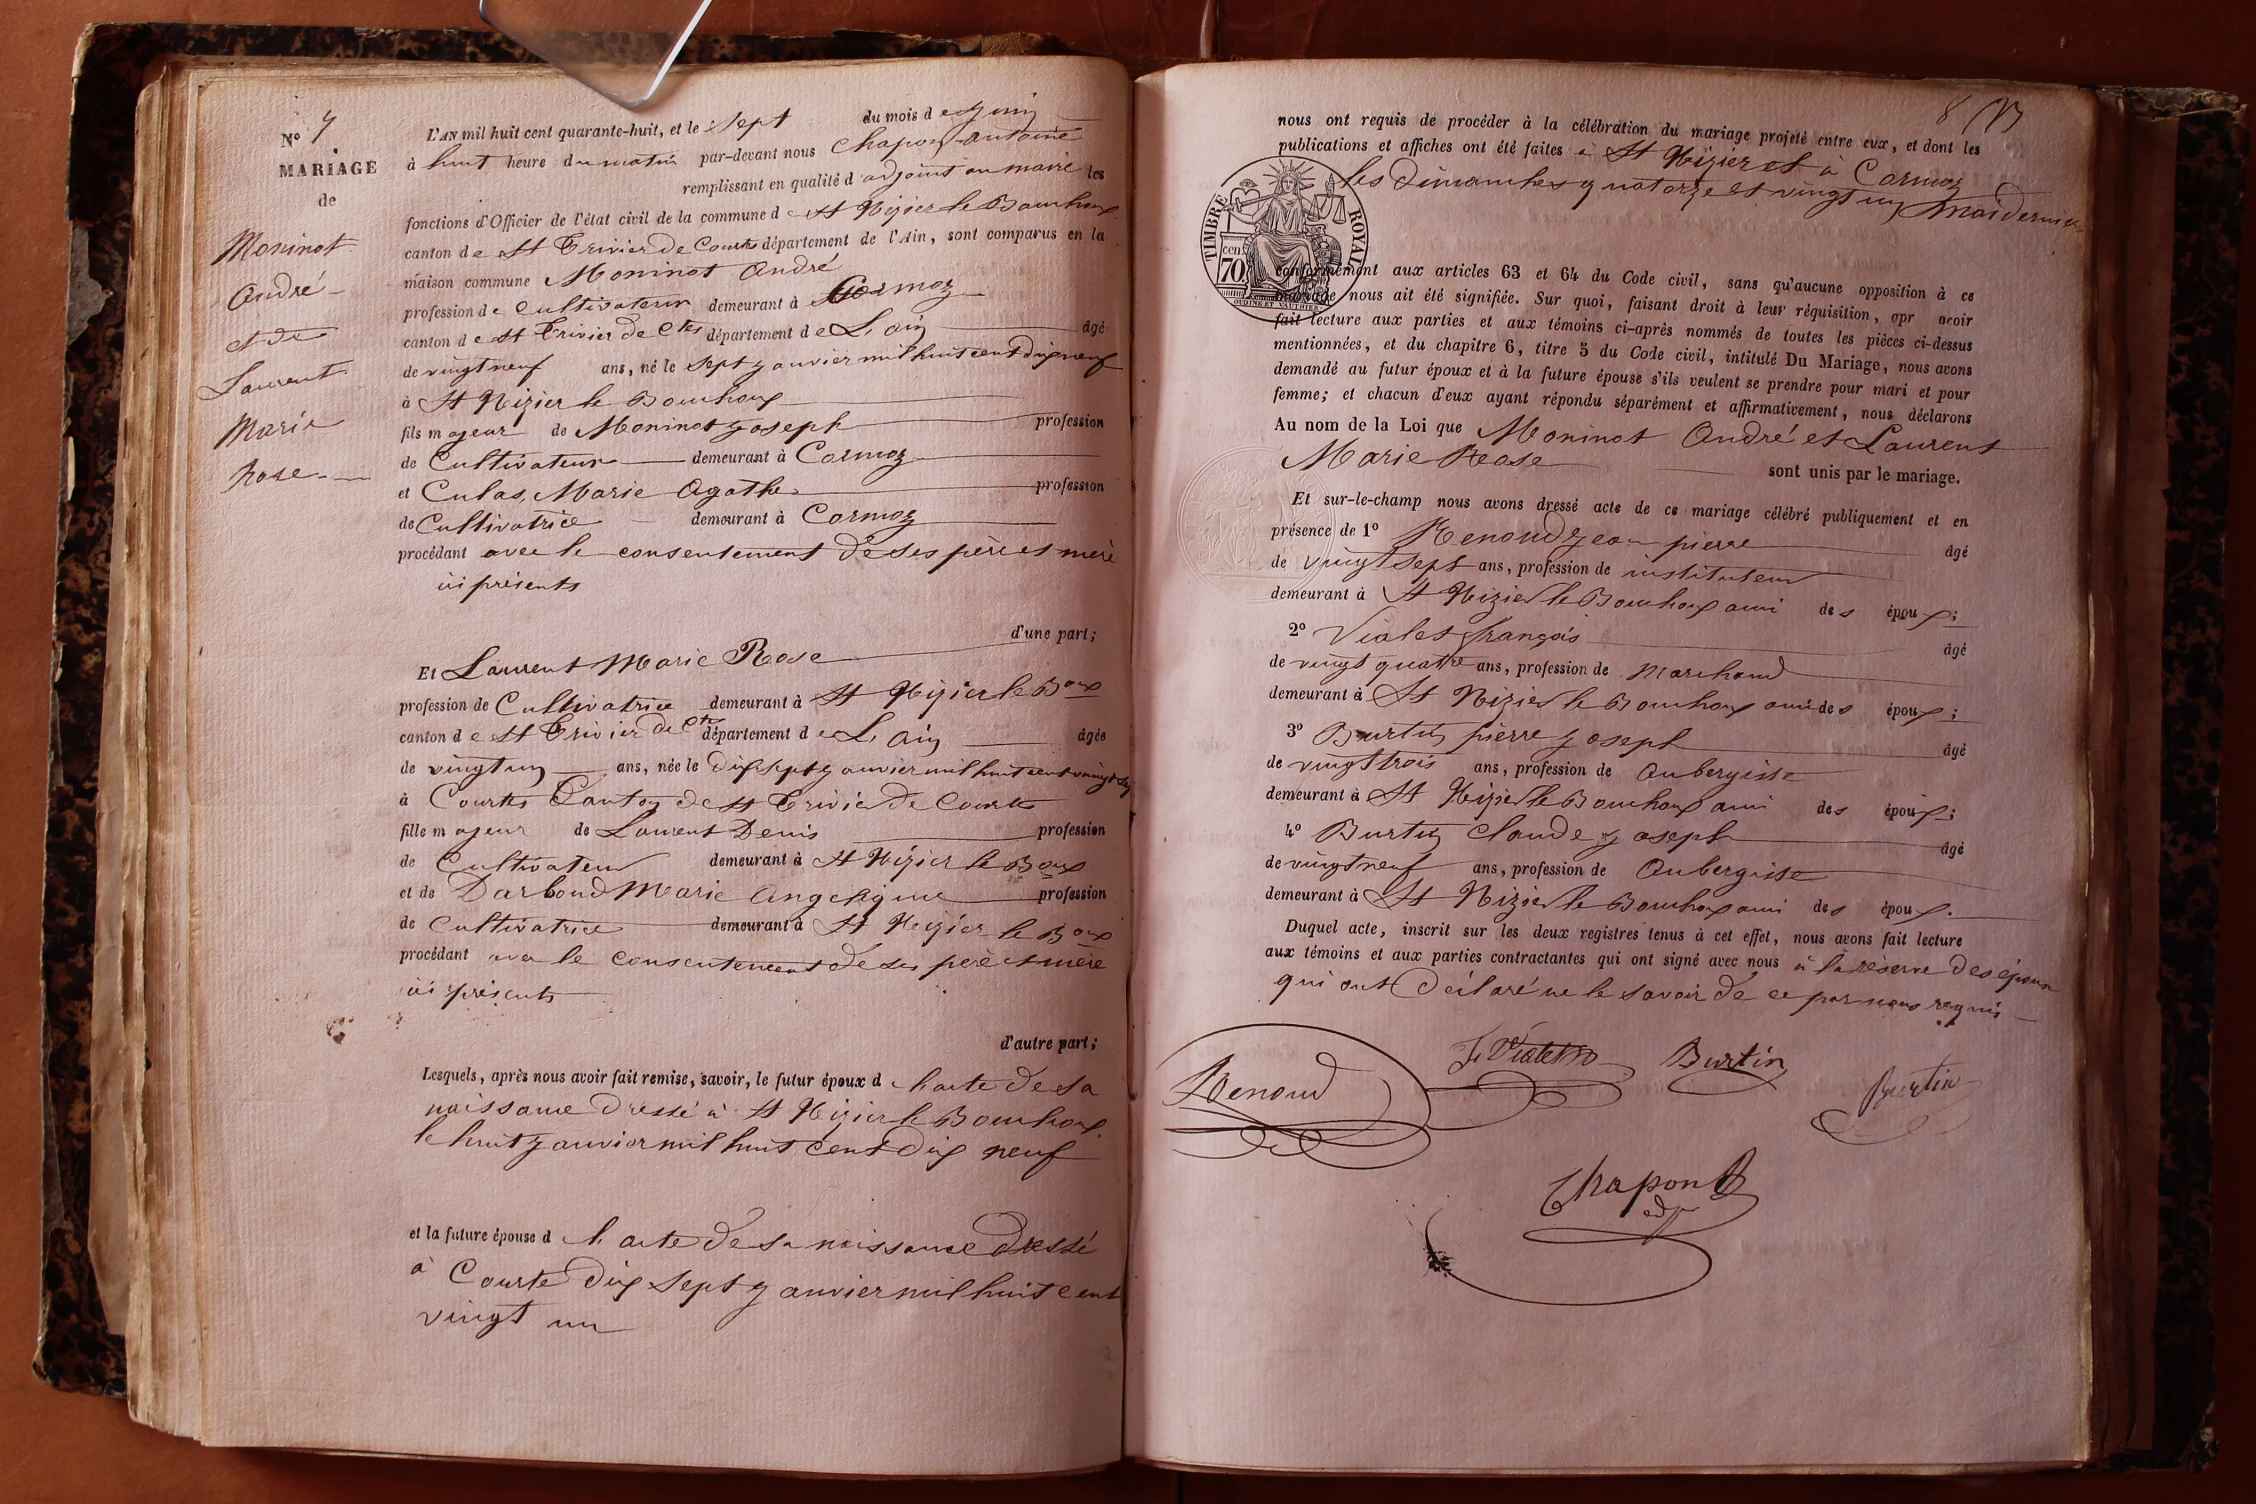 N° 7
MARIAGE
de
Moninot
André
et de
Laurent
Marie
Rose
L'AN mil huit cent quarante-huit, et le sept du mois de juin
à huit heure du matin par-devant nous Chapon antoine
remplissant en qualité d'adjoint au maire les
fonctions d'Officier de l'état civil de la commune de St Nizier le Bouchoux
canton de St Trivier de Courtes département de l'Ain, sont comparus en la
maison commune Moninot André
profession de cultivateur demeurant à Cormoz
canton de St Trivier de Ctes département de L'ain âgé
de vingt neuf ans, né le sept janvier mil huit cent dix neuf
à St Nizier le Bouchoux
fils majeur de Moninot joseph profession
de Cultivateur demeurant à Cormoz
et Culas Marie Agathe profession
de Cultivatrice demeurant à Cormoz
procédant avec le consentement de ses père et mère
ici présents
d'une part;
Et Laurent Marie Rose
profession de Cultivatrice demeurant à St Nizier le Boux
canton de St Trivier de Ctes département de L'Ain âgée
de vingt un ans, née le dix sept janvier mil huit cent vingt un
à Courtes Canton de St Trivié de Courtes
fille majeur de Laurent Denis profession
de Cultivateur demeurant à St Nizier le Boux
et de Darbond Marie Angelique profession
de cultivatrice demeurant à St Nizier le Boux
procédant le consentement de ses père et mère
ici présents
d'autre part;
Lesquels, après nous avoir fait remise, savoir, le futur époux d l'acte de sa
naissance dressé à St Nizier le Bouchoux
le huit janvier mil huit cent dix neuf
et la future épouse d l'acte de sa naissance dressé
à Courte dix sept janvier mil huit cent
vingt un
8
nous ont requis de procéder à la célébration du mariage projeté entre eux, et dont les
publications et affiches ont été faites à St Nizier et à Cormoz
les dimanches quatorze et vingt un mai dernier
TIMBRE ROYAL
70 cen
conformément aux articles 63 et 64 du Code civil, sans qu'aucune opposition à ce
mariage nous ait été signifiée. Sur quoi, faisant droit à leur réquisition, apr avoir
fait lecture aux parties et aux témoins ci-après nommés de toutes les pièces ci-dessus
mentionnées, et du chapitre 6, titre 5 du Code civil, intitulé Du Mariage, nous avons
demandé au futur époux et à la future épouse s'ils veulent se prendre pour mari et pour
femme; et chacun d'eux ayant répondu séparément et affirmativement, nous déclarons
Au nom de la Loi que Moninot André et Laurent
Marie Rose sont unis par le mariage.
Et sur-le-champ nous avons dressé acte de ce mariage célébré publiquement et en
présence de 1° Renoud jean pierre âgé
de vingt sept ans, profession de instituteur
demeurant à St Nizier le Bouchoux ami des époux;
2° Violet françois âgé
de vingt quatre ans, profession de Marchand
demeurant à St Nizier le Bouchoux ami des époux;
3° Burtin pierre joseph âgé
de vingt trois ans, profession de Aubergiste
demeurant à St Nizier le Bouchoux ami des époux;
4° Burtin claude joseph âgé
de vingt neuf ans, profession de Aubergiste
demeurant à St Nizier le Bouchoux ami des époux.
Duquel acte, inscrit sur les deux registres tenus à cet effet, nous avons fait lecture
aux témoins et aux parties contractantes qui ont signé avec nous à la réserve des époux
qui ont déclaré ne le savoir de ce par nous requis
Renoud
Burtin
Burtin
Chapon
adj